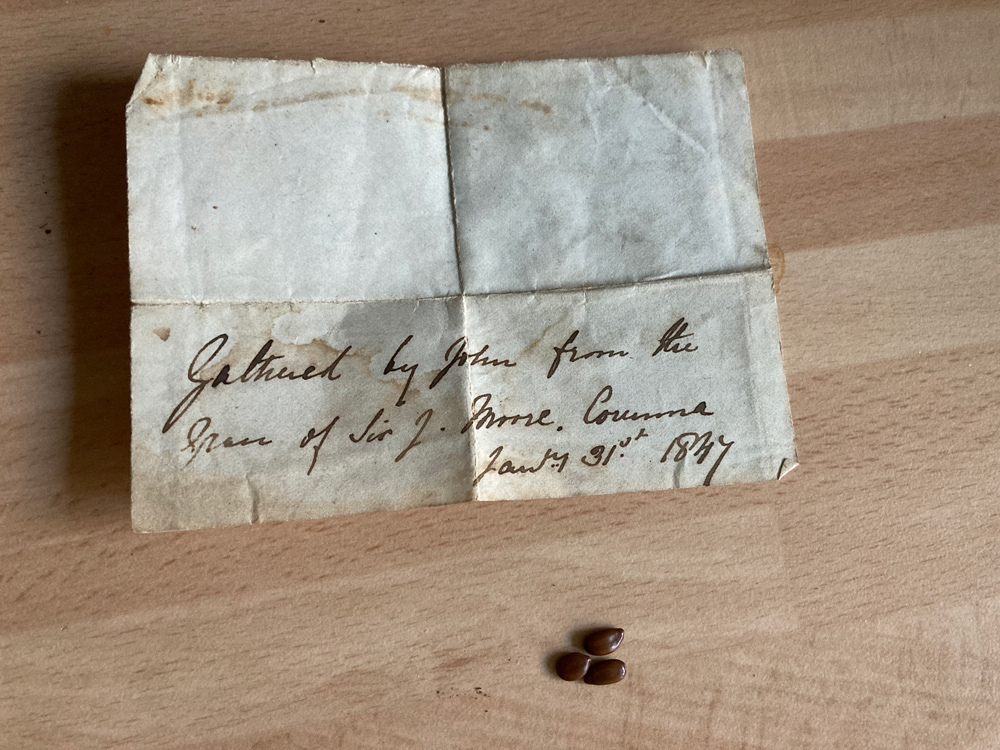 Gathered by John from the
Grave of Sir J. Moore. Corunna
Jany 31st 1847